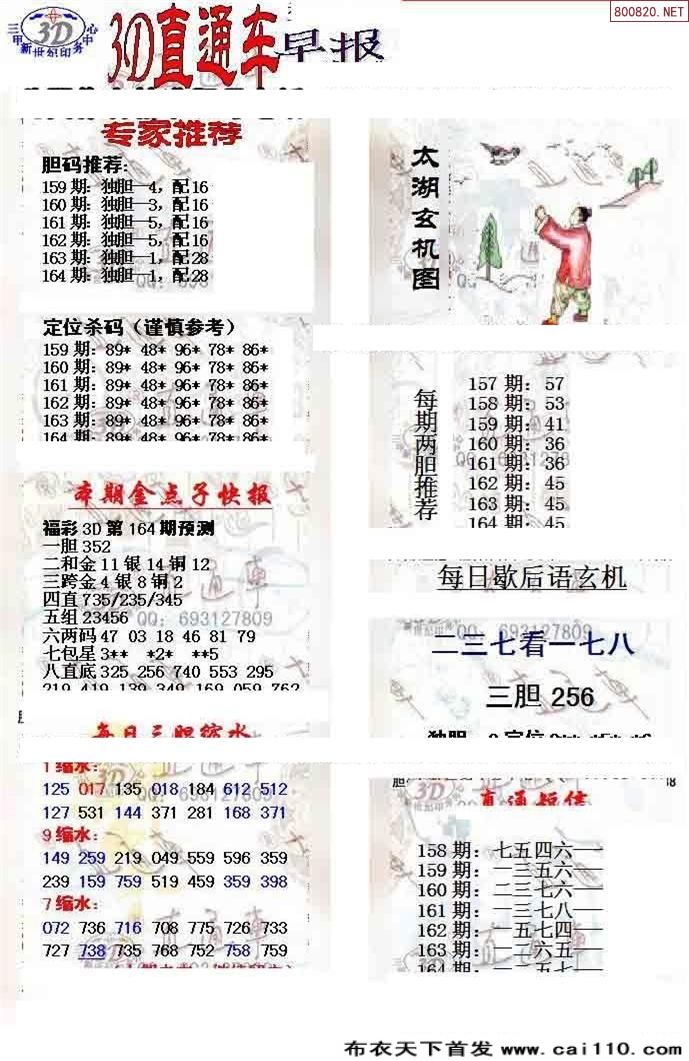 800820.NET
三甲 3D 中心
新世纪印务
3D直通车早报
专家推荐
胆码推荐:
159期: 独胆—4, 配16
160期: 独胆—3, 配16
161期: 独胆—5, 配16
162期: 独胆—5, 配16
163期: 独胆—1, 配28
164期: 独胆—1, 配28
定位杀码（谨慎参考）
159期: 89* 48* 96* 78* 86*
160期: 89* 48* 96* 78* 86*
161期: 89* 48* 96* 78* 86*
162期: 89* 48* 96* 78* 86*
163期: 89* 48* 96* 78* 86*
164期: 89* 48* 96* 78* 86*
本期金点子快报
福彩3D第164期预测
一胆352
二和金11银14铜12
三跨金4银8铜2
四直735/235/345
五组23456
六两码47 03 18 46 81 79
七包星3** *2* **5
八直底325 256 740 553 295
219 419 139 349 169 059 762
QQ: 693127809
每日三胆缩水
1缩水:
125 017 135 018 184 612 512
127 531 144 371 281 168 371
9缩水:
149 259 219 049 559 596 359
239 159 759 519 459 359 398
7缩水:
072 736 716 708 775 726 733
727 738 735 768 752 758 759
太湖玄机图
每期两胆推荐
157期: 57
158期: 53
159期: 41
160期: 36
161期: 36
162期: 45
163期: 45
164期: 45
每日歇后语玄机
QQ: 693127809
二三七看一七八
三胆 256
直通短信
158期: 七五四六一
159期: 一三五六一
160期: 二三七六一
161期: 一三七八一
162期: 一五七四一
163期: 一一六五一
164期: 一二五七一
布衣天下首发 www.cai110.com